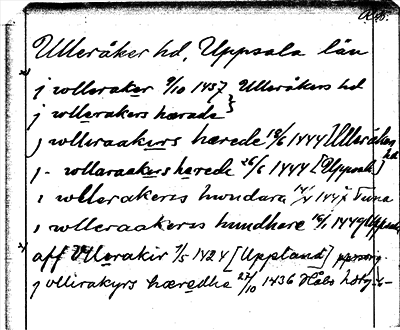 Ulleråker hd, Uppsala län
j wlleraker 9/10 1437 Ulleråkers hd
j wllerakers hærade }
j wlleraakers hærede 12/6 1444 [Ulleråkers hd
j wllaraakers hærede 26/6 1444 [Uppsala]
i wllerakers hundara 1447 Tuna
i wlleraakers hundhere 1449 [Uppsala
aff Vllerakir 1/5 1424 [Uppland] personn.
j vllirakyrs hæredhe 27/10 1436 Håbo